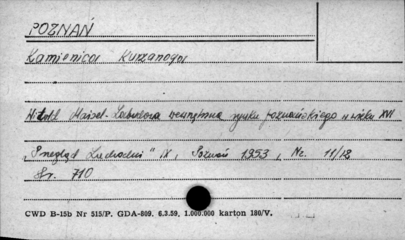 POZNAŃ
Kamienica Kurzanoga
Witold Maisel: zewnętrzna rynku poznańskiego w wieku XVI
„Przegląd Zachodni" IX, Poznań 1953, Nr. 11/12
Str. 710
CWD B-15b Nr 515/P. GDA-809. 6.3.59. 1.000.000 karton 180/V.